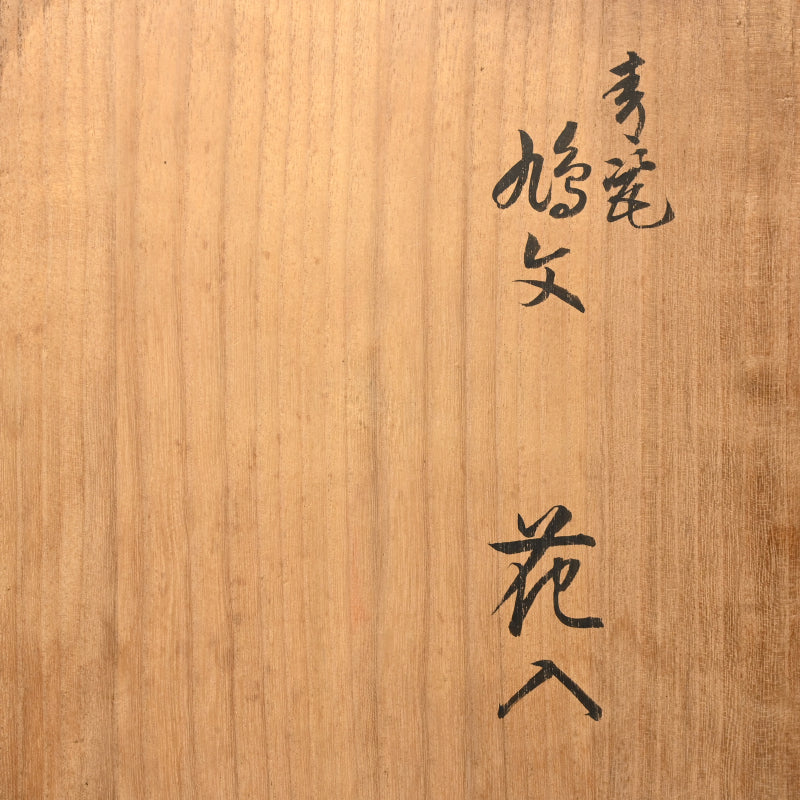 青瓷
鳩文 花入